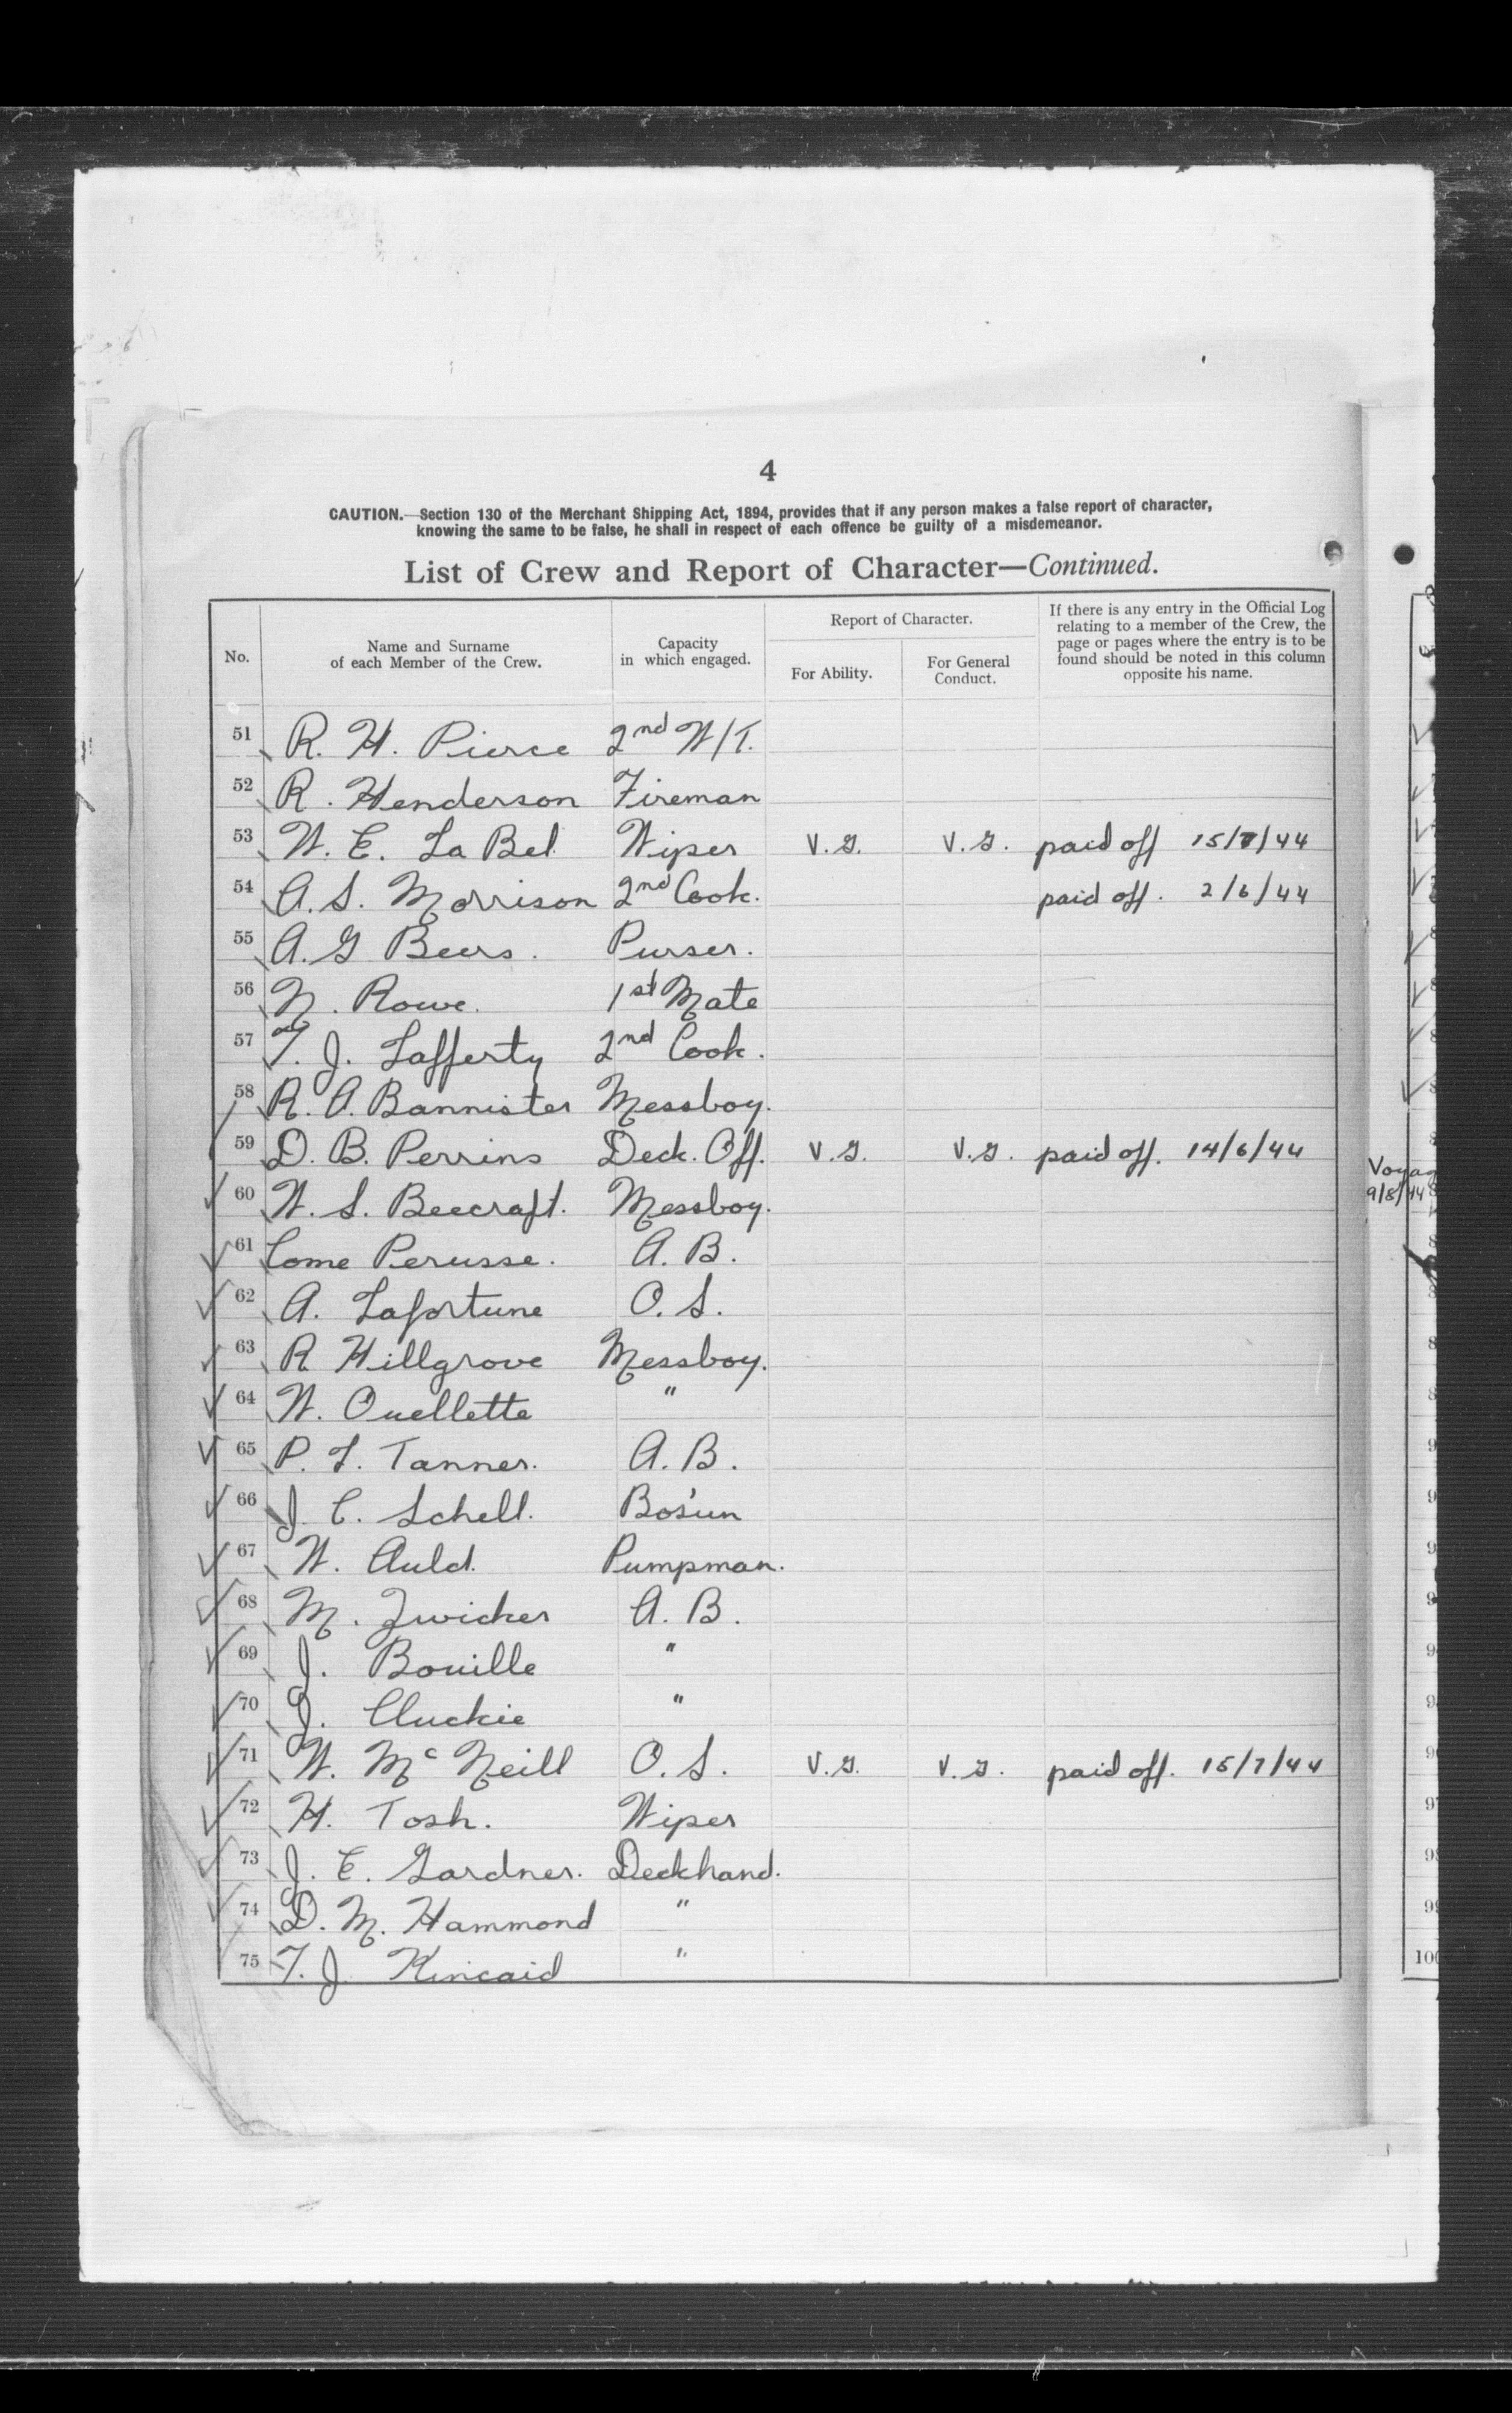 4
CAUTION.—Section 130 of the Merchant Shipping Act, 1894, provides that if any person makes a false report of character,
knowing the same to be false, he shall in respect of each offence be guilty of a misdemeanor.
List of Crew and Report of Character—Continued.
No. Name and Surname of each Member of the Crew. Capacity in which engaged. Report of Character. For Ability. For General Conduct. If there is any entry in the Official Log relating to a member of the Crew, the page or pages where the entry is to be found should be noted in this column opposite his name.
51 R. H. Pierce 2nd W/T.
52 R. Henderson Fireman
53 W. E. La Bel Wiper V.G. V.G. paid off 15/7/44
54 A. S. Morrison 2nd Cook. paid off. 2/6/44
55 A. G Beers. Purser.
56 N. Rowe. 1st Mate
57 T. J. Lafferty 2nd Cook.
58 R. A. Bannister Messboy.
59 D. B. Perrins Deck. Off. V.G. V.G. paid off. 14/6/44
60 W. S. Beecraft. Messboy.
61 Come Perusse. A. B.
62 A. Lafortune O. S.
63 R Hillgrove Messboy.
64 W. Ouellette "
65 P. L. Tanner. A. B.
66 J. C. Schell. Bos'un
67 W. Auld. Pumpman.
68 M. Zwicker A. B.
69 J. Bouille "
70 J. Cluckie "
71 W. McNeill O. S. V.G. V.G. paid off. 15/7/44
72 H. Tosh. Wiper
73 J. E. Gardner. Deckhand.
74 D. M. Hammond "
75 T. J Kincaid "
9/8/44